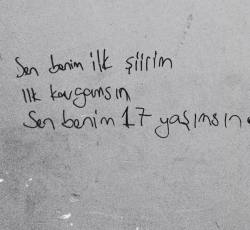 Sen benim ilk şiirim
ilk kavgamsın
Sen benim 17 yaşımsın.